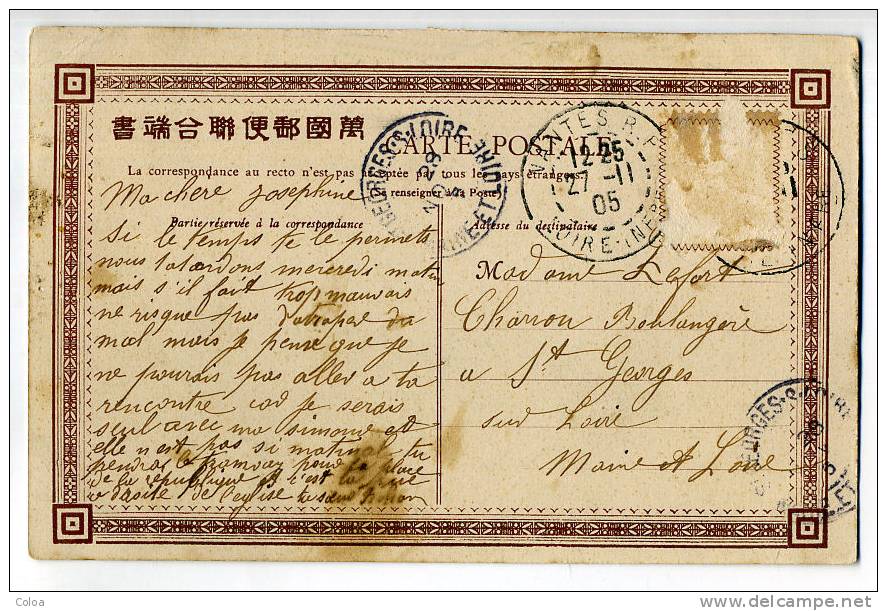 書端合聯便郵國萬
CARTE POSTALE
La correspondance au recto n'est pas acceptée par tous les pays étrangers.
(Se renseigner à la Poste)
Partie réservée à la correspondance
Adresse du destinataire
NANTES R.P.
12 25
27 -11
05
LOIRE-INFRE
GEORGES-S-LOIRE
28
MAINE-ET-LOIRE
Ma chere Josephine
Si le temps te le permets
nous t'atardons mercredi matin
mais s'il fait trop mauvais
ne risque pas d'atrapar du
mal mais je pense que je
ne pourais pas aller a ta
rencontre car je serais
seul avec ma simone et
elle n'est pas si matinal tu
pendras le tramway pour la place
de la republique et c'est la rue
a droite de l'eglise ta sœur
Madame Lefort
Charron Boulangère
a St Georges
sur Loire
Maine et Loire
GEORGES-S-LOIRE
28
Coloa
delcampe.net